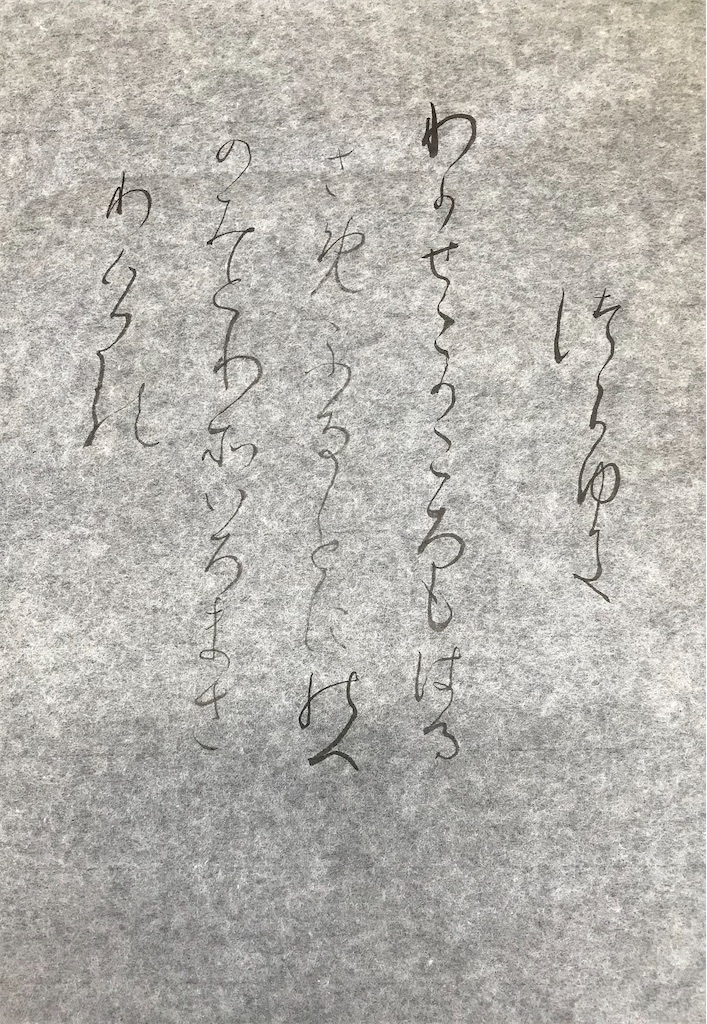 つらゆき
わかせこかころもはる
さめふることに野へ
のみとりそいろまさ
りける